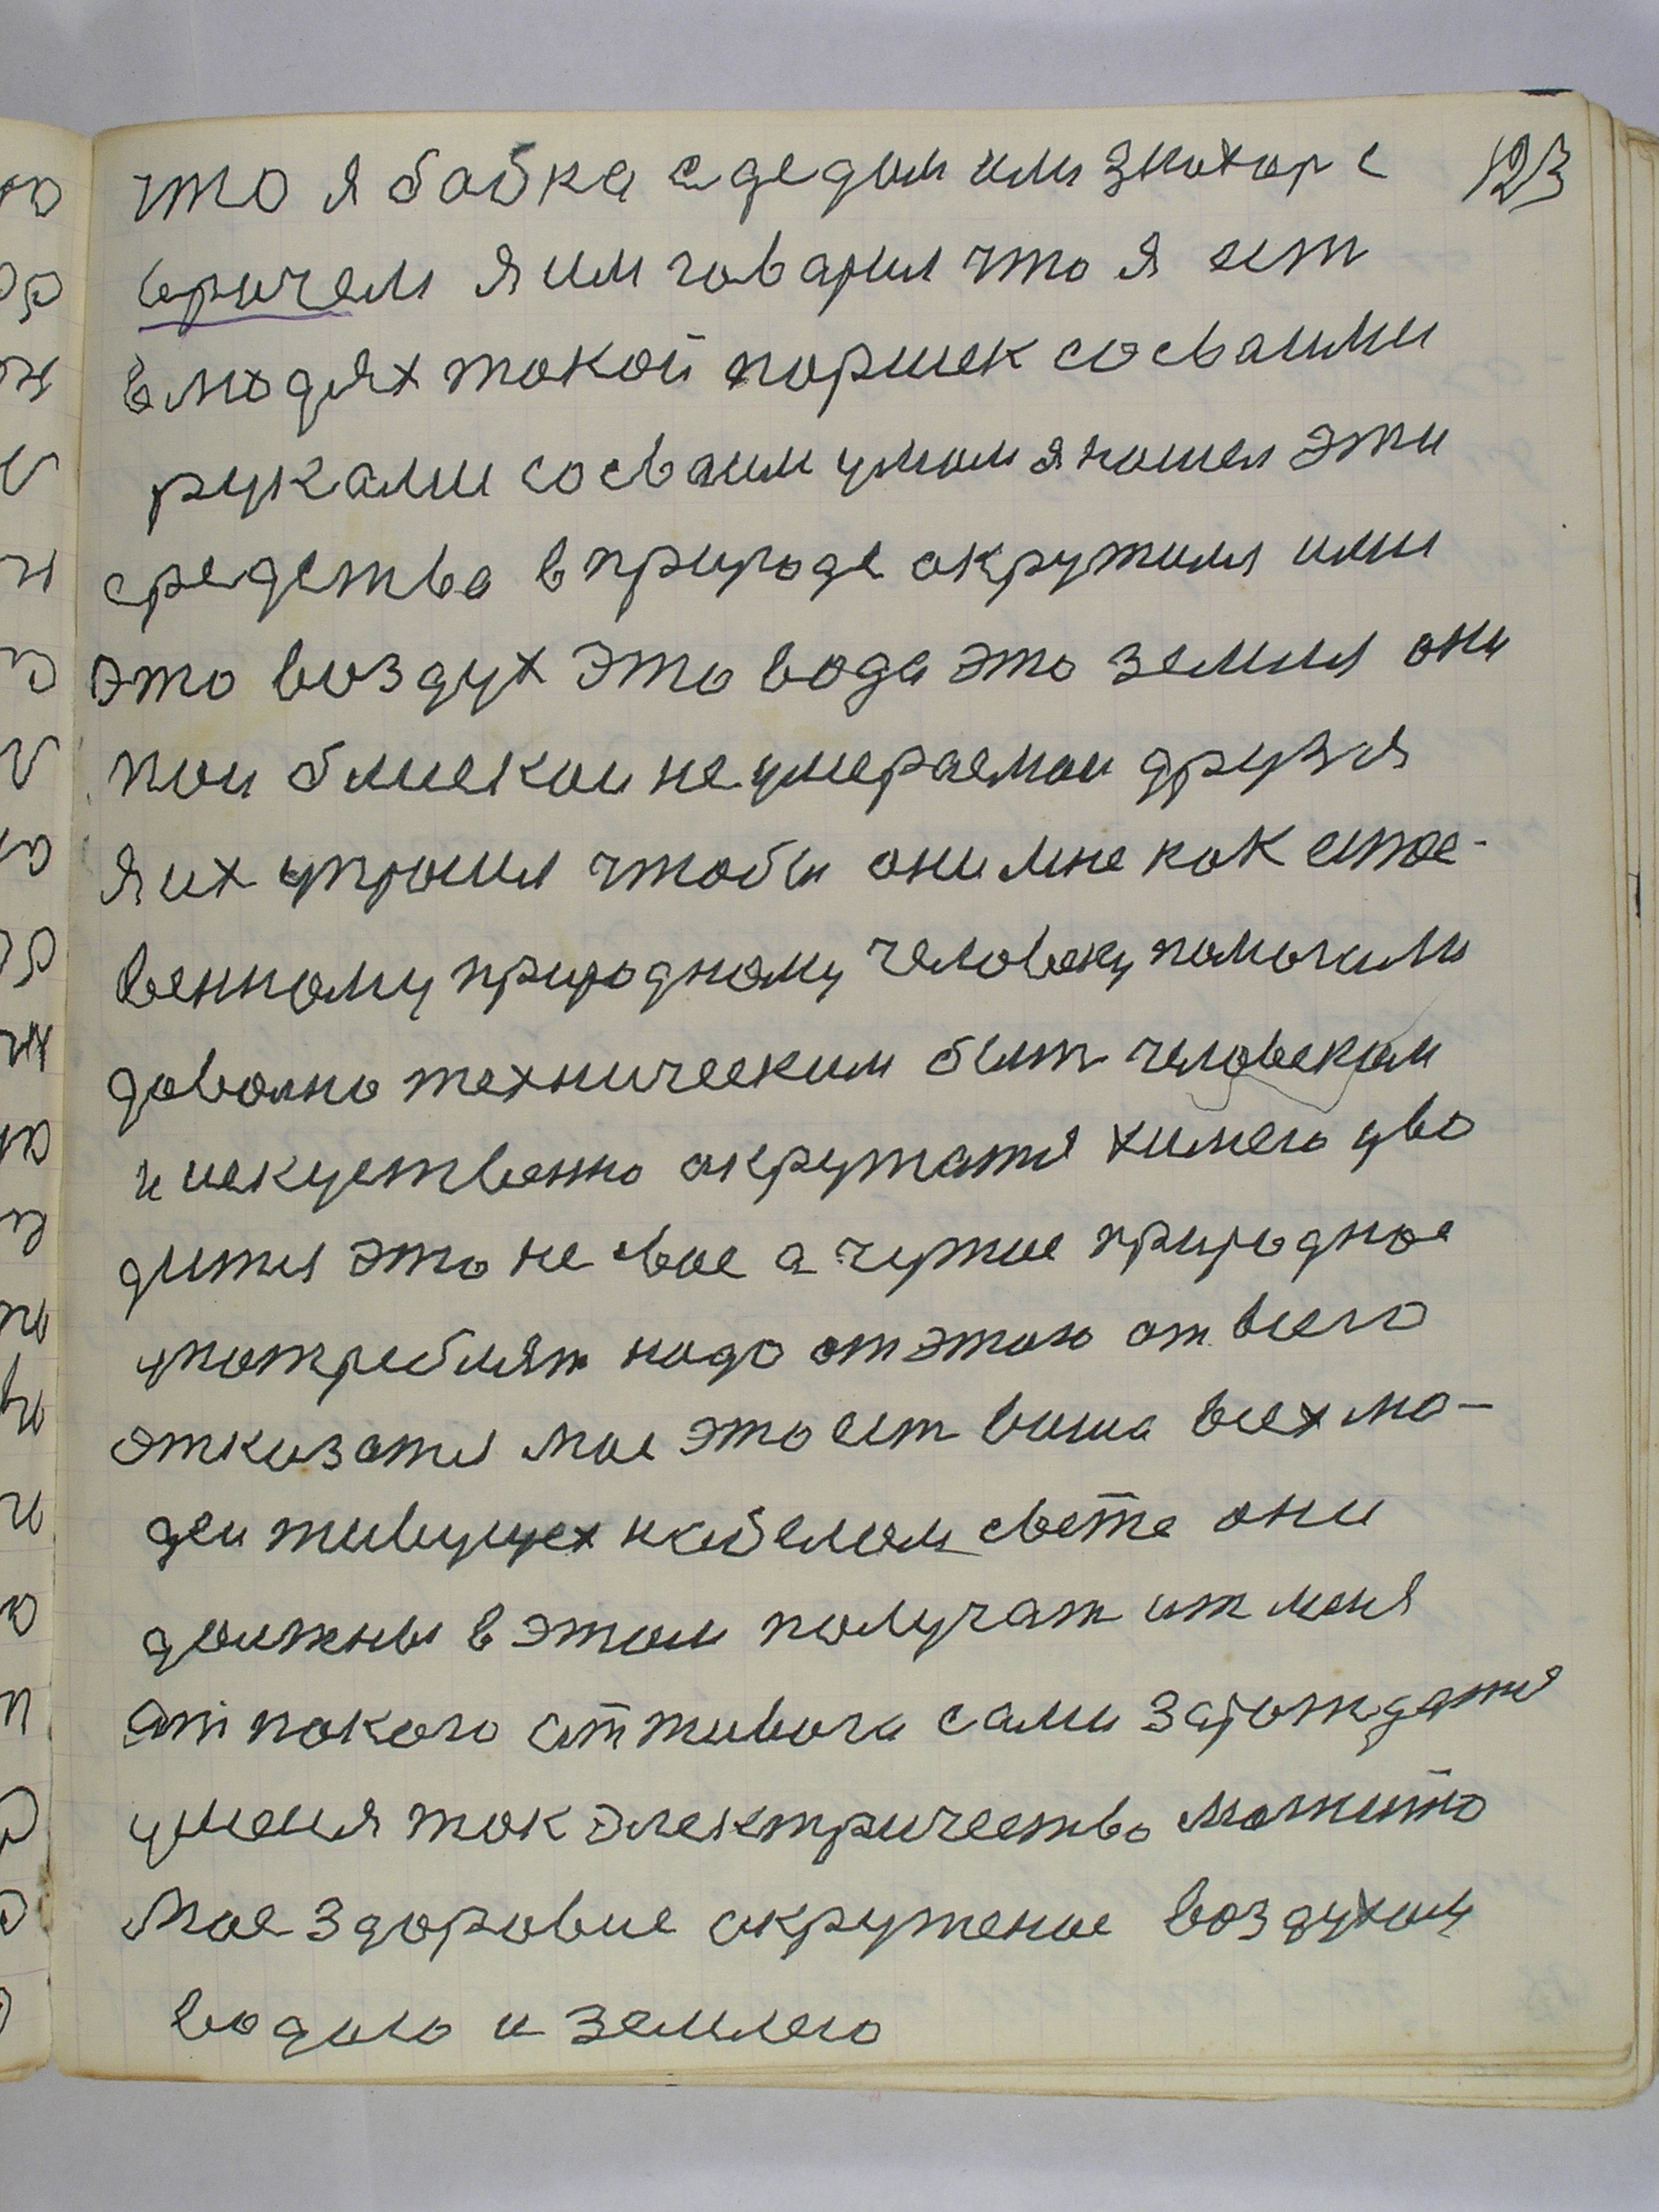 что я бабка с дедом или знахор с 123
врачем я им говарил что я ест
в людях такой поршек сосваими
руками сосваим умом я ношел эти
средства в природе акружил ими
это воздух это вода это земля они
мои близкои неумераемои друзя
я их упросил чтобы они мне как естес-
венному природному человеку помогали
доволно техническим быт человеком
и искуственно акружатся химею уво
дится это не свое а чужое природное
употреблят надо от этого от всего
отказатся мое это ест ваша всех лю-
деи живущех на белом свете они
должны в этом получат от меня
от такого от живога сами зарождатся
умения ток электричество магнито
мое здоровие окруженое воздухом
водою и землею